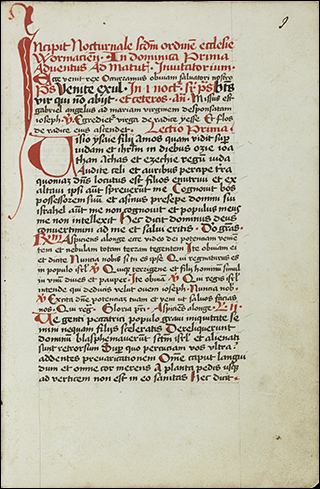 9
Incipit Nocturnale scdm ordinem ecclesie
Wormacien. In dominica Prima
Adventus Ad Matut. Invitatorium.
Ecce venit rex Occuramus obviam salvatori nostro
Ps Venite exul. In i noct. ps. bts
vir qui no abijt. et ceteros. an. Missus est
gabriel angelus ad mariam virginem desponsatam
ioseph. V Egrediet virga de radice yesse Et flos
de radice eius ascendet. Lectio Prima.
Visio ysaie filij amos quam vidit sup
iudam et ihrlm in diebus ozie ioa
than achas et ezechie regum iuda
Audite celi et auribus percipe tra
quoniaz dns locutus est filios enutrivi et ex
altavi ipsi aut spreverut me Cognovit bos
possessorem suu et asinus presepe domini sui
israhel aut me non cognovit et populus meus
me non intellexit Hec dicit dominus deus
convertimini ad me et salvi eritis. Do gras.
Rm Aspiciens a longe ecce video dei potenciam venien
tem et nebulam totam terram tegentem Ite obviam ei
et dicite Nuncia nobis si tu es ipse Qui regnaturus es
in populo isrl V Quiqz terrigene et filij hominum simul
in unu dives et pauper. Ite obvia. V Qui regis isrl
intende qui deducis velut ovem ioseph. Nuncia nob.
V Excita dne potenciaz tuam et veni ut salvos facias
nos. Qui reg. Gloria pri. Aspiciens a longe. L. ij
Ve genti peccatrici populo gravi iniquitate se
mini nequam filijs sceleratis Dereliquerunt
dominu blasphemaverut scm isrl et alienati
sunt retrorsum Sup quo percuciam vos ultra
addentes prevaricationem Omne caput langui
dum et omne cor merens A planta pedis usqz
ad verticem non est in eo sanitas Hec dicit.